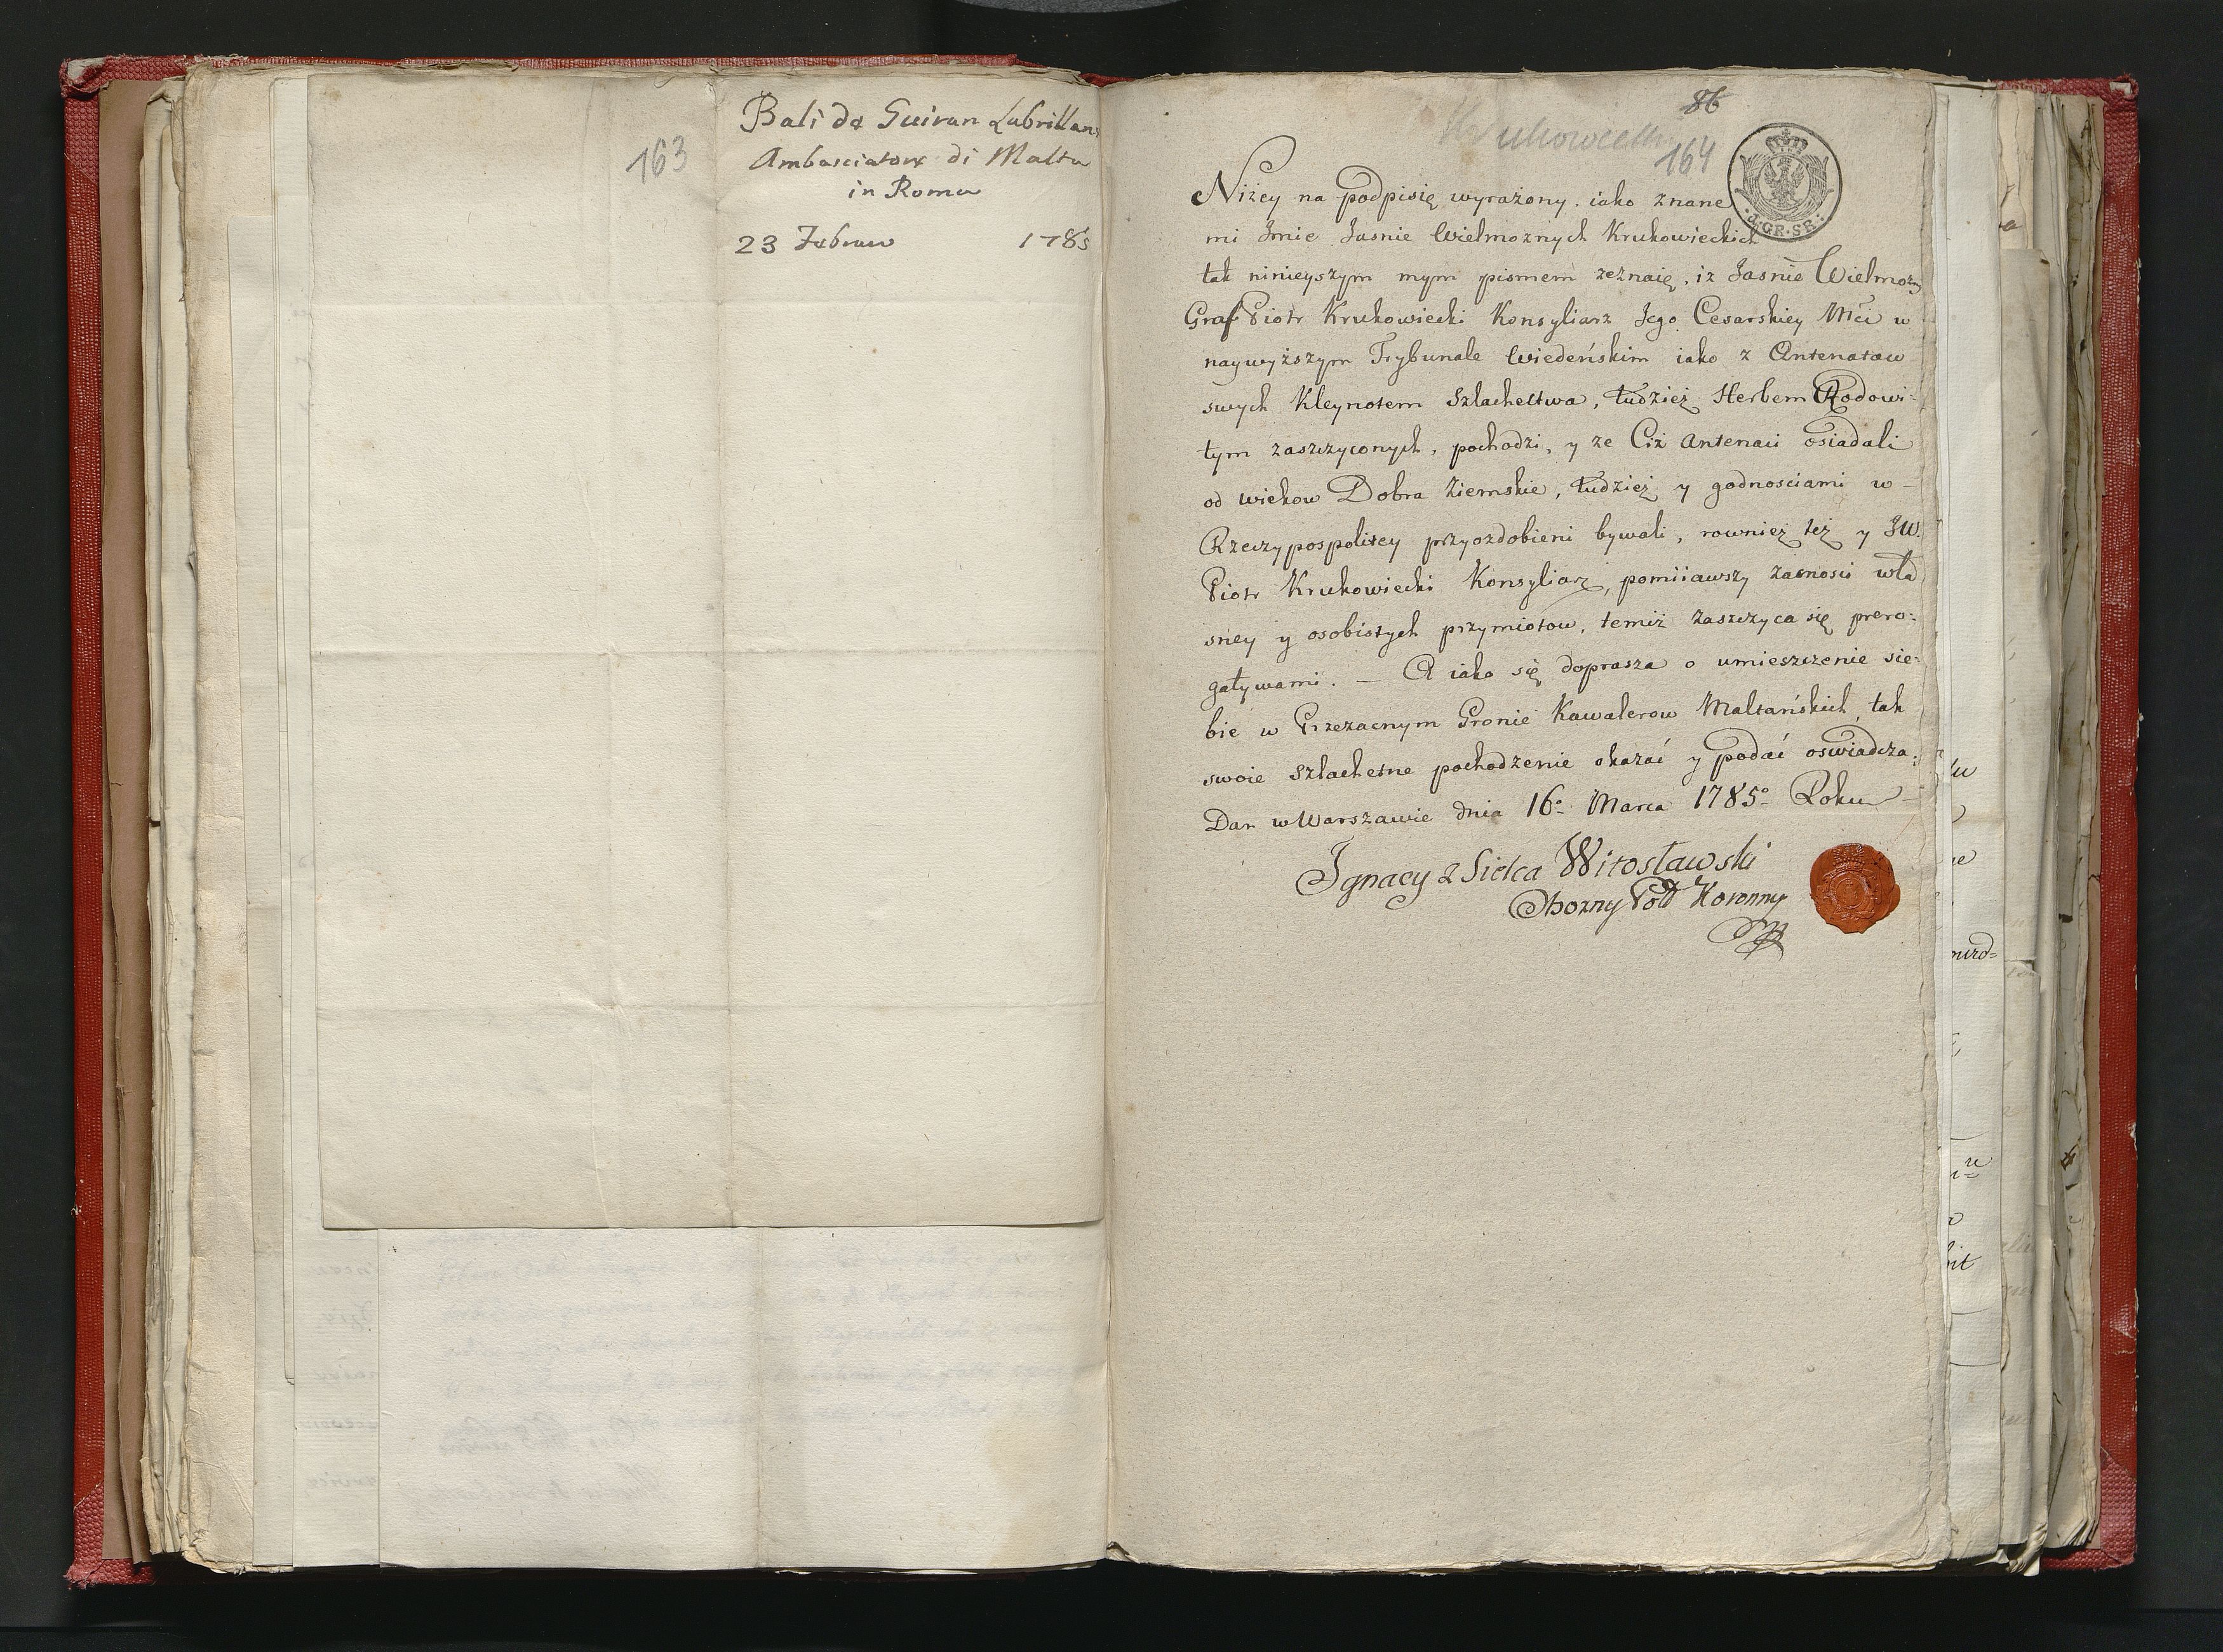 163
Bali de Guiran Labrillane
Ambasciatore di Malta
in Roma
23 Febraro 1785
86
Krukowiecki
164
4.GR.SR:
Niżey na podpisię wyrażony. iako znane
mi Imie Jasnie Wielmoznych Krukowieckich
tak ninieyszym mym pismem zeznaię, iz Jasnie Wielmozny
Graf Piotr Krukowiecki Konsyliarz Jego Cesarskiey Mći w
naywyższym Trybunale Wiedeńskim iako z Antenatow
swych Kleynotem Szlachectwa, tudzież Herbem Rodowi-
tym zaszczyconych, pochodzi, y ze Ciż Antenaci osiadali
od wiekow Dobra Ziemskie, tudzież y godnosciami w-
Rzeczypospolitey przyozdobieni bywali, rownież też y JW.
Piotr Krukowiecki Konsyliarz, pomiiawszy zacnosć wła
sney y osobistych przymiotow, temiż zaszczyca się prero-
gatywami. — A iako się doprasza o umieszczenie sie-
bie w Przezacnym Gronie Kawalerow Maltańskich, tak
swoie szlachetne pochodzenie okazać y podać oswiadcza:
Dan w Warszawie dnia 16º Marca 1785º Roku —
Ignacy z Sielca Witosławski
Obozny Pol Koronny